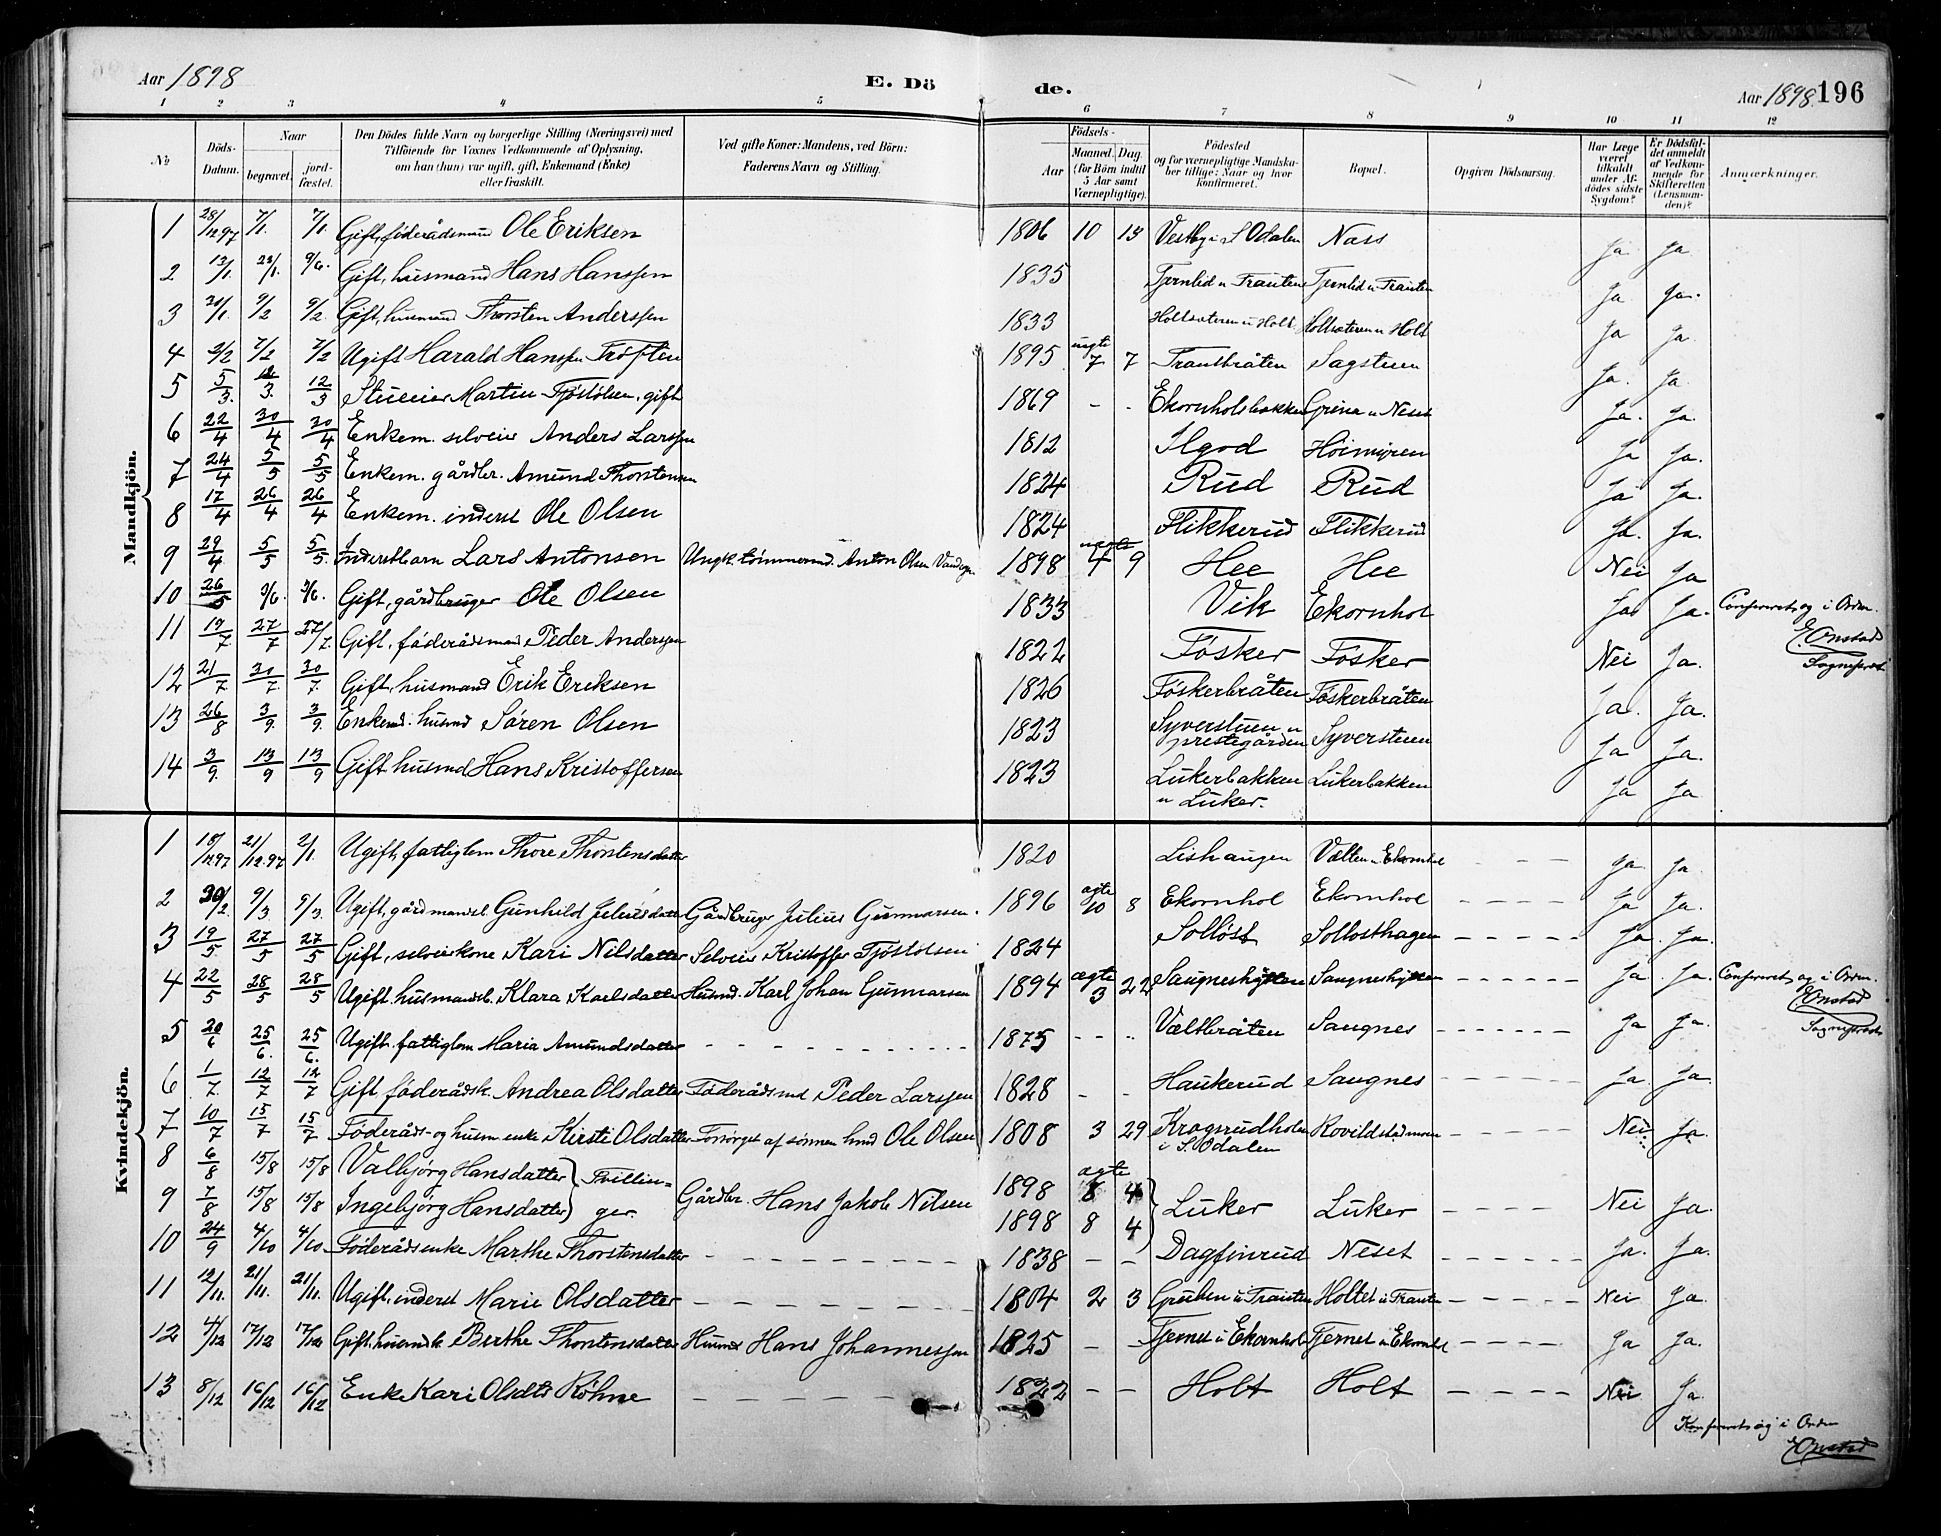 Aar 1898 E. Döde. Aar 1898. 196
1 2 3 4 5 6 7 8 9 10 11 12
No Döds-Datum. Naar begravet. jordfæstet. Den Dödes fulde Navn og borgerlige Stilling (Næringsvei) med Tilföiende for Voxnes Vedkommende af Oplysning, om han (hun) var ugift, gift, Enkemand (Enke) eller fraskilt. Ved gifte Koner: Mandens, ved Börn: Faderens Navn og Stilling. Födsels- Aar Maaned. Dag. (for Börn indtil 5 Aar samt Værnepligtige). Födested og for værnepligtige Mandskaber tillige: Naar og hvor konfirmeret. Bopæl. Opgiven Dödsaarsag. Har Læge været tilkaldt under Afdödes sidste Sygdom? Er Dödsfaldet anmeldt af Vedkommende for Skifteretten (Lensmanden)? Anmærkninger.
Mandkjön.
1 28/12 97 7/1. 7/1. Gift, föderådsmand Ole Eriksen 1806 10 13 Vestby i S Odalen Næss Ja Ja
2 13/1. 23/1. 9/6. Gift, husmand Hans Hanssen 1835 Tjernlid u Trauten Tjernlid u Trauten Ja Ja.
3 30/1. 9/2 9/2. Gift, husmand Thorsten Anderssen 1833 Holtsæteren u Holt Holtsæteren u Holt Ja Ja.
4 2/2 7/2 7/2 Ugift Harald Hanssen Tröften 1895 7 7 Trautbråten Sagstuen Ja. Ja
5 5/3. 12/3. 12/3 Martin Fjöstölsen, gift 1869 - - Ekornholsbakken Grina u Neset Ja. Ja.
6 22/4 30/4 30/4 Enkem. selveier Anders Larssen 1812 Ilgod Höimyren Ja Ja.
7 24/4 5/5 5/5 Enkem. gårdbr. Amund Thorstensen 1824 Rud Rud Ja Ja.
8 17/4 26/4 26/4 Enkem. inderst Ole Olsen 1824 Flikkerud Flikkerud Ja. Ja.
9 29/4. 5/5 5/5. Inderstbarn Lars Antonsen Ungk. tömmermd. Anton Olsen 1898 uægte 4 9 Hee Hee Nei Ja
10 26/5 3/6. 3/6. Gift, gårdbruger Ole Olsen 1833 Vik Ekornhol Ja Ja. Confereret og i Orden.
11 19/7 27/7 27/7. Gift, föderådsmand Peder Anderssen 1822 Fösker Fösker Nei Ja. E. Onstad
12 21/7 30/7. 30/7. Gift, husmand Erik Eriksen 1826 Föskerbråten Föskerbråten Ja. Ja. Sogneprest
13 26/8 3/9. 3/9. Enkemd. husmd Sören Olsen 1823 Syverstuen u prestegården Syverstuen Ja Ja.
14 3/9. 13/9 13/9 Gift husmd Hans Kristoffersen 1823 Lukerbakken u Luker. Lukerbakken Ja Ja
Kvindekjön.
1 18/12 97 21/12.97 2/1. Ugift, fattiglem Thore Thorstensdatter 1820 Lishaugen Vælten u Ekornhol - - - - Ja Ja.
2 30/2. 9/3 9/3. Ugift, gårdmandsb. Gunhild Juliusdatter Gårdbruger Julius Gunnarsen. 1896 ægte 10 8 Ekornhol Ekornhol - - - - Ja Ja.
3 19/5. 27/5 27/5 Gift, selveierkone Kari Nilsdatter Selveier Kristoffer Fjöstolsen 1824 Sollöst Sollosthagen - - - - Ja. Ja.
4 22/5 28/5 28/5 Ugift husmandsb. Klara Karlsdatter Husmd. Karl Johan Gunnarsen 1894 ægte 3 22 Saugneshytten Saugneshytten - - - - Ja. Ja. Confereret og i Orden.
E. Onstad
5 20/6 25/6. 25/6. Ugift. fattiglem Maria Amundsdatter - - - - 1875 - - Væltbråten Saugnes - - - - Ja Ja. Sogneprest
6 1/7. 12/7 12/7 Gift föderådsk. Andrea Olsdatter Föderådsmd Peder Larssen 1828 - - Haukerud Saugnes - - - - Ja. Ja.
7 10/7 15/7 15/7 Föderåds- og husm. enke Kirsti Olsdatter Forsörget af sönnen hmd Ole Olsen 1808 3 29 Krogsrudholen i S. Odalen Rovildstadmoen - - - - Nei Ja.
8 6/8 15/8 15/8 Valbjörg Hansdatter Tvillin= 1898 ægte 8 4
9 7/8 15/8 15/8 Ingebjörg Hansdatter ger. Gårdbr. Hans Jakob Nilsen 1898 8 4 Luker Luker - - - - Nei Ja.
10 24/9 4/10 4/10 Föderådsenke Marthe Thorstensdatter - - - - 1838 - - Dagfinrud Neset - - - - Ja. Ja.
11 12/11. 21/11. 21/11. Ugift, inderst Marie Olsdatter - - - - 1804 2 3 Gruben u Trauten Holtet u Trauten - - - - Nei Ja.
12 4/12 17/12 17/12 Gift, husmdk. Berthe Thorstensdatter Husmd Hans Johannessen 1825 - - Tjernet u Ekornhol Tjernet u Ekornhol - - - - Ja Ja.
13 8/12 16/12 16/12 Enke Kari Olsdtr Röhne 1822 - - Holt Holt - - - - Nei Ja.
Konfereret og i Orden
E. Onstad